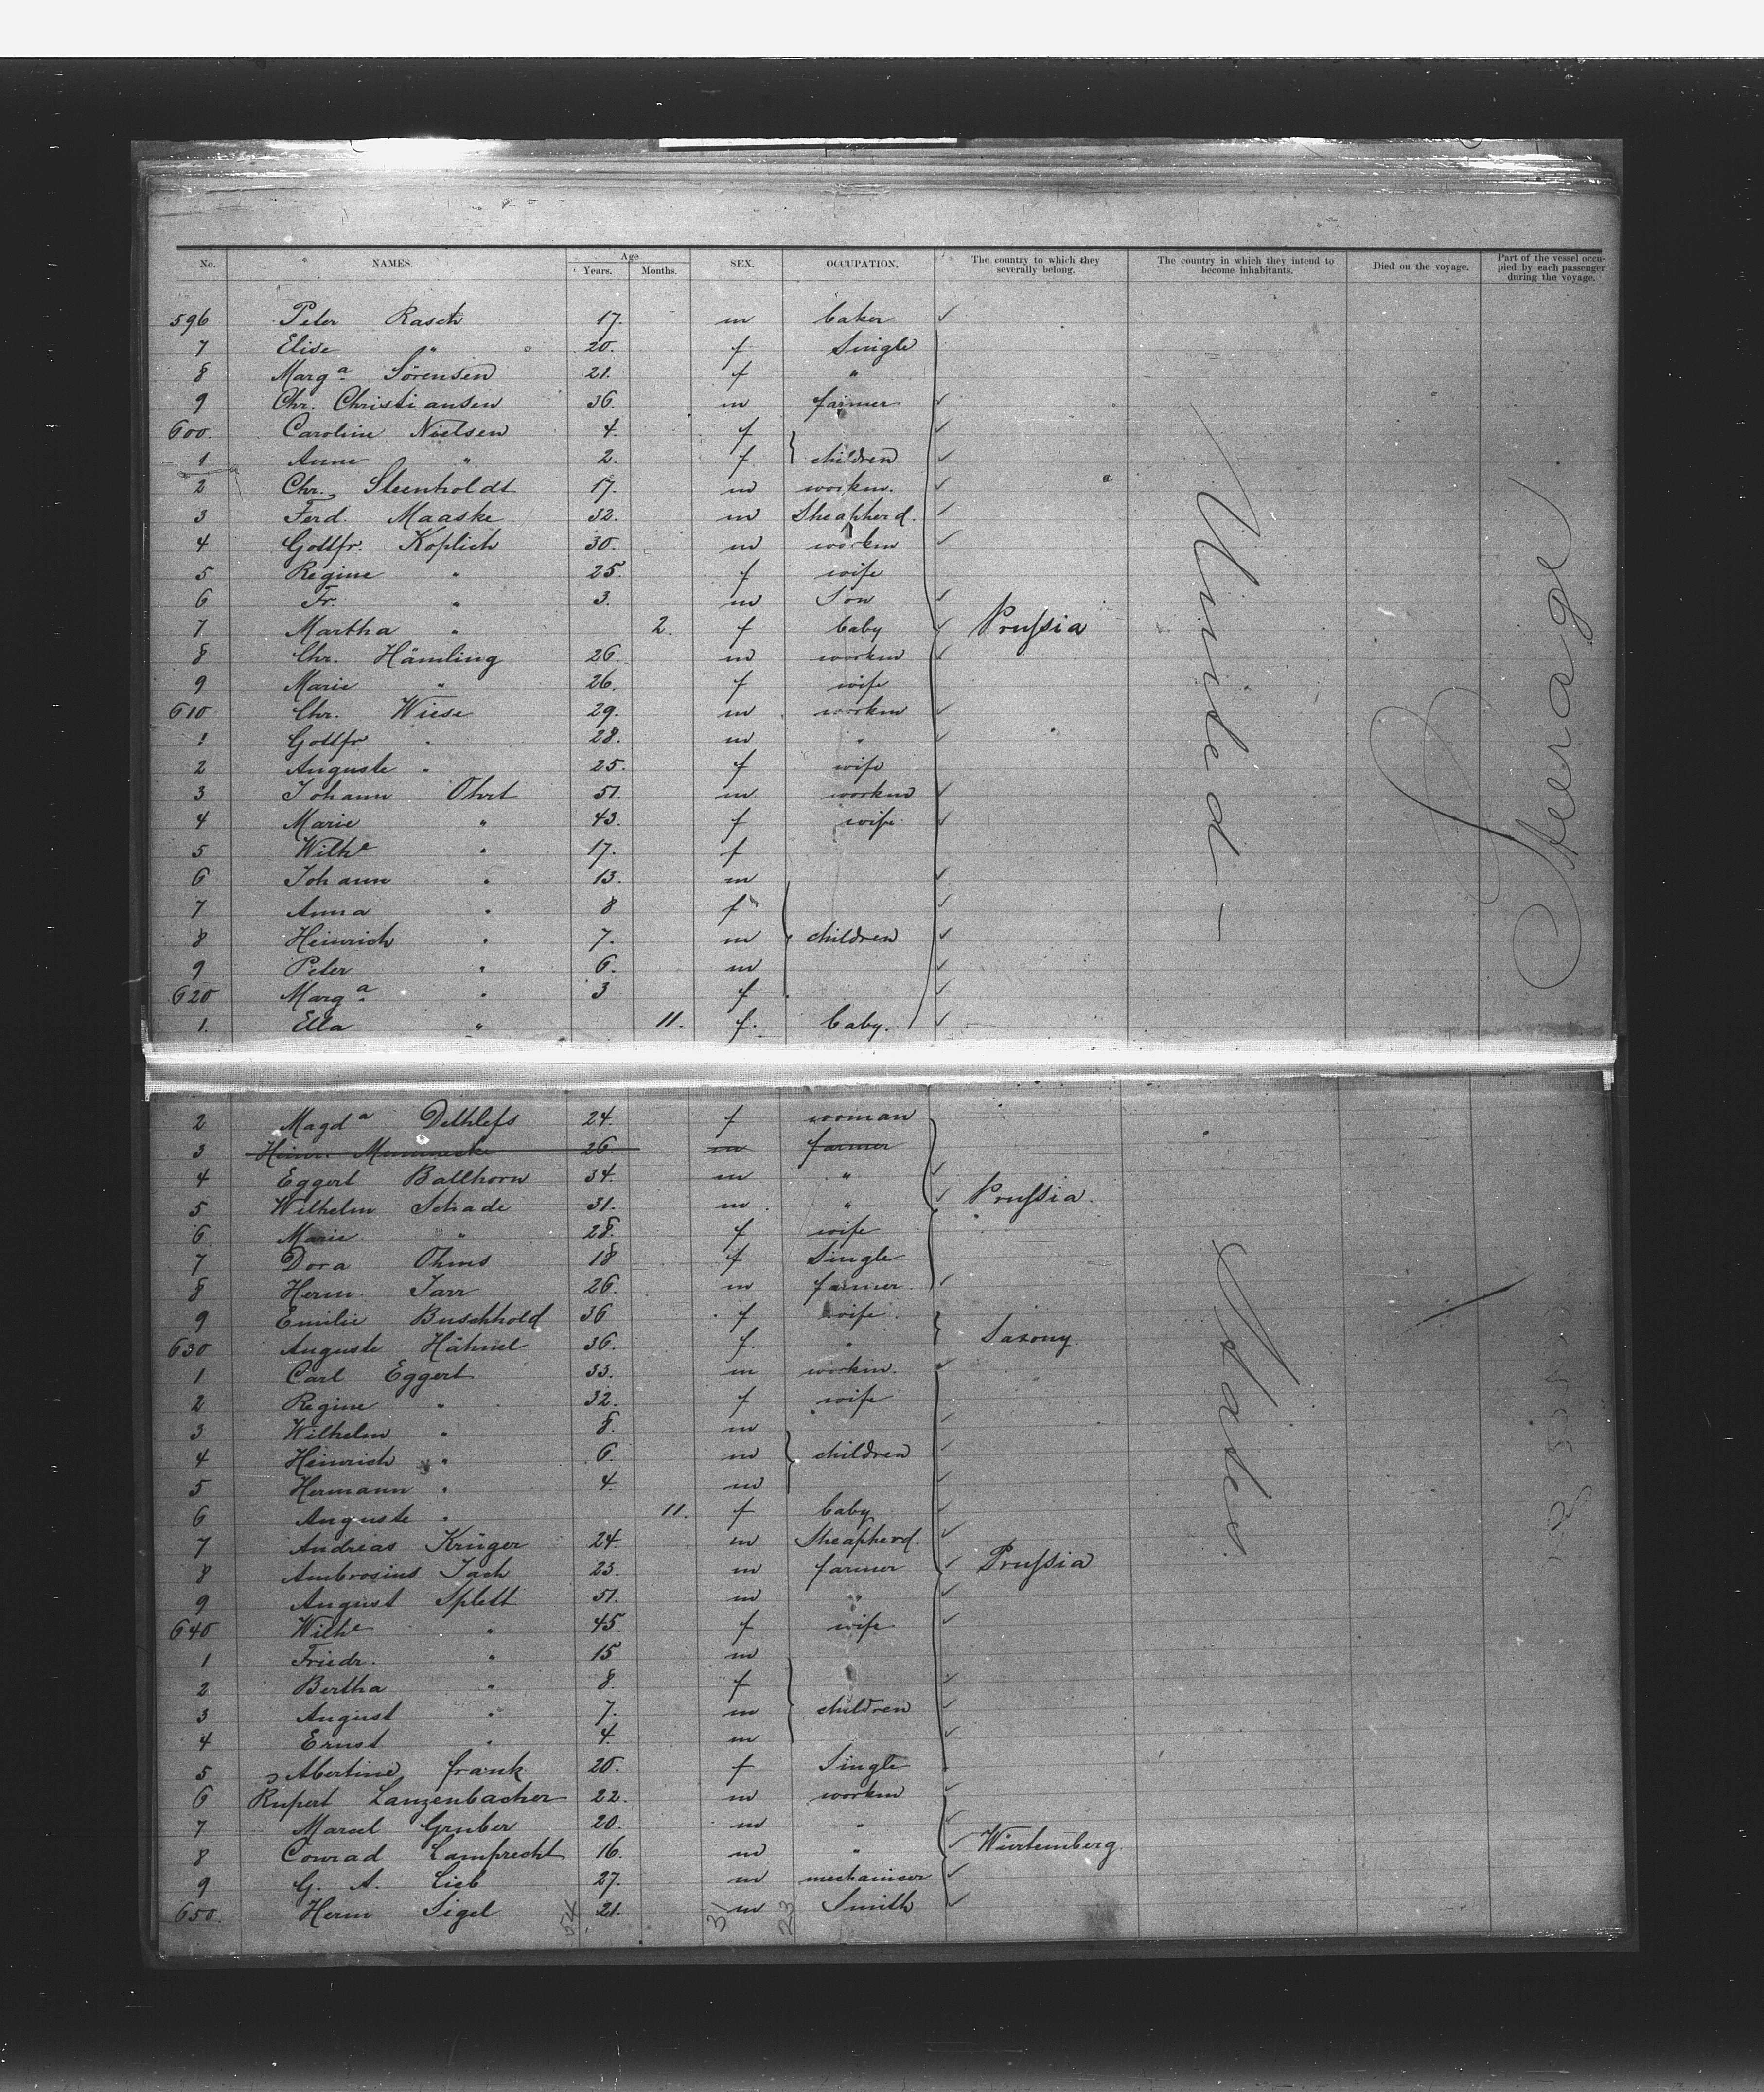 No. NAMES. Age Years. Months. SEX. OCCUPATION. The country to which they severally belong. The country in which they intend to become inhabitants. Died on the voyage. Part of the vessel occupied by each passenger during the voyage.
596 Peter Rasch 17. m baker
7 Elise " 20. f Single
8 Marga Sörensen 21. f "
9 Chr. Christiansen 36. m farmer
600. Caroline Nielsen 4. f
1 Anne " 2. f children
2 Chr. Steenholdt 17. m workm.
3 Ferd. Maaske 32. m Sheapherd.
4 Gottfr. Koplich 30. m workm
5 Regine " 25. f wife
6 Fr. " 3. m Son
7 Martha " 2. f baby Prussia
8 Chr. Hämling 26. m workm
9 Marie " 26. f wife
610 Chr. Wiese 29. m workm
1 Gottfr " 28. m "
2 Auguste " 25. f wife
3 Johann Ohrt 51. m workm
4 Marie " 43. f wife
5 Wilhe " 17. f
6 Johann " 13. m
7 Anna " 8 f
8 Heinrich " 7. m children
9 Peter " 6. m
620 Marga " 3 f
1. Ella " 11. f. baby.
United -
Steerage
2 Magda Dethlefs 24. f woman
3 Heinr. 26. m farmer
4 Eggert Ballhorn 34. m "
5 Wilhelm Schade 31. m " Prussia.
6 Marie " 28. f wife
7 Dora Ohms 18 f Single
8 Herm. Jarr 26. m farmer.
9 Emilie Buschhold 36 f wife.
630 Auguste Hähnel 36. f. " Saxony.
1 Carl Eggert 33. m workm.
2 Regine " 32. f wife
3 Wilhelm " 8. m
4 Heinrich " 6. m children
5 Hermann " 4. m
6 Auguste " 11. f baby
7 Andreas Krüger 24. m Sheapherd.
8 Ambrosius Jach 23. m farmer Prussia
9 August Splett 51. m "
640 Wilhe " 45. f wife
1 Friedr. " 15 m
2 Bertha " 8. f
3 August " 7. m children
4 Ernst " 4. m
5 Albertine frank 20. f Single
6 Rupert Lanzenbacher 22. m workm
7 Marcel Gruber 20. m "
8 Conrad Lamprecht 16. m " Würtemberg.
9 G. A. Lieb 27. m mechanicer
650. Herm Sigel 21. m Smith
States.
54 31 23